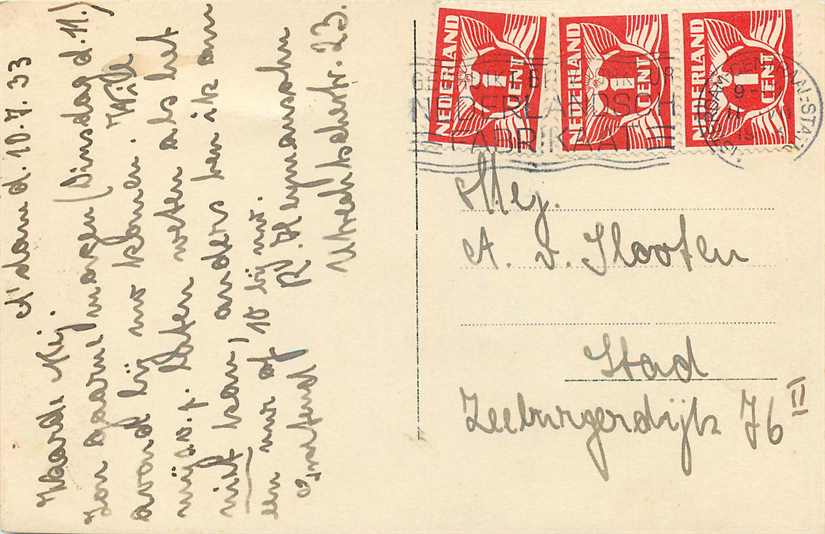 A'dam d. 10.7.33
Waarde Mej.
Zou gaarne morgen (Dinsdag d. 11.)
avond bij uw komen. Wilt
mij s.v.p. laten weten als het
niet kan, anders ben ik om
een uur of 10 bij uw.
R. Heymansohn
Utrechtschestr. 23.
NEDERLAND
1
CENT
NEDERLAND
1
CENT
NEDERLAND
1
CENT
NEDERLANDSCH
FABRIKAAT
Mej.
A. v. Slooten
Stad
Zeeburgerdijk 76 II